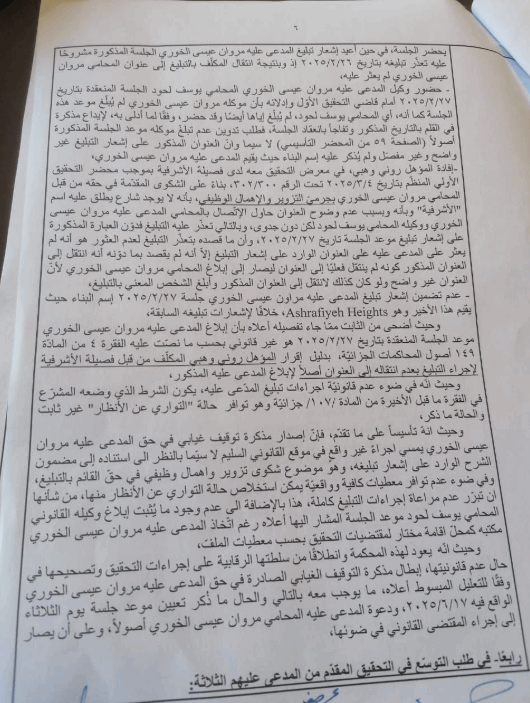 ٦
يحضر الجلسة، في حين أعيد إشعار تبليغ المدعى عليه مروان عيسى الخوري الجلسة المذكورة مشروحًا
عليه تعذّر تبليغه بتاريخ ٢٠٢٥/٢/٢٦ إذ وبنتيجة انتقال المكلّف بالتبليغ إلى عنوان المحامي مروان
عيسى الخوري لم يعثر عليه،
- حضور وكيل المدعى عليه مروان عيسى الخوري المحامي يوسف لحود الجلسة المنعقدة بتاريخ
٢٠٢٥/٢/٢٧ أمام قاضي التحقيق الأوّل وإدلائه بأن موكله مروان عيسى الخوري لم يُبلّغ موعد هذه
الجلسة كما أنه، أي المحامي يوسف لحود، لم يُبلّغ إياها أيضًا وقد حضر، وفقًا لما أدلى به، لإيداع مذكرة
في القلم بالتاريخ المذكور وتفاجأ بانعقاد الجلسة، فطلب تدوين عدم تبلغ موكله موعد الجلسة المذكورة
أصولًا (الصفحة ٥٩ من المحضر التأسيسي) لا سيما وانّ العنوان المذكور على إشعار التبليغ غير
واضح وغير مفصّل ولم يُذكر عليه إسم البناء حيث يقيم المدعى عليه مروان عيسى الخوري،
-إفادة المؤهل روني وهبي، في معرض التحقيق معه لدى فصيلة الأشرفية بموجب محضر التحقيق
الأولي المنظّم بتاريخ ٢٠٢٥/٣/٤ تحت الرقم ٣٠٢/٣٠٠، بناءً على الشكوى المقدّمة في حقه من قبل
المحامي مروان عيسى الخوري بجرمَيْ التزوير والإهمال الوظيفي، بأنه لا يوجد شارع يطلق عليه اسم
"الأشرفية" وبأنه وبسبب عدم وضوح العنوان حاول الإتّصال بالمحامي المدعى عليه مروان عيسى
الخوري ووكيله المحامي يوسف لحود لكن دون جدوى، وبالتالي تعذّر عليه التبليغ فدوّن العبارة المذكورة
على إشعار تبليغ موعد الجلسة تاريخ ٢٠٢٥/٢/٢٧، وأن ما قصده بتعذّر التبليغ لعدم العثور هو أنه لم
يعثر على المدعى عليه على العنوان الوارد على إشعار التبليغ إلاّ أنه لم يقصد بما دوّنه أنه انتقل إلى
العنوان المذكور كونه لم ينتقل فعليًا إلى العنوان ليصار إلى إبلاغ المحامي مروان عيسى الخوري لأنّ
العنوان غير واضح ولو كان كذلك لانتقل إلى العنوان المذكور وأبلغ الشخص المعني بالتبليغ،
- عدم تضمين إشعار تبليغ المدعى عليه مراون عيسى الخوري جلسة ٢٠٢٥/٢/٢٧ إسم البناء حيث
يقيم هذا الأخير وهو Ashrafiyeh Heights، خلافًا لإشعارات تبليغه السابقة،
وحيث أضحى من الثابت ممّا جاء تفصيله أعلاه بأن إبلاغ المدعى عليه مروان عيسى الخوري
موعد الجلسة المنعقدة بتاريخ ٢٠٢٥/٢/٢٧ هو غير قانوني بحسب ما نصت عليه الفقرة ٤ من المادّة
١٤٩ أصول المحاكمات الجزائيّة، بدليل إقرار المؤهل روني وهبي المكلّف من قبل فصيلة الأشرفية
لإجراء التبليغ بعدم انتقاله إلى العنوان أصلًا لإبلاغ المدعى عليه المذكور،
وحيث انّه في ضوء عدم قانونيّة اجراءات تبليغ المدّعى عليه، يكون الشرط الذي وضعه المشرّع
في الفقرة ما قبل الأخيرة من المادة /١٠٧/ جزائيّة وهو توافر حالة "التواري عن الأنظار" غير ثابت
والحالة ما ذكر،
وحيث انه تأسيساً على ما تقدّم، فإنّ إصدار مذكرة توقيف غيابي في حق المدعى عليه مروان
عيسى الخوري يمسي اجراءً غير واقع في موقعه القانوني السليم لا سيّما بالنظر الى استناده إلى مضمون
الشرح الوارد على إشعار تبليغه، وهو موضوع شكوى تزوير واهمال وظيفي في حقّ القائم بالتبليغ،
وفي ضوء عدم توافر معطيات كافية وواقعيّة يمكن استخلاص حالة التواري عن الانظار منها، من شأنها
ان تبرّر عدم مراعاة إجراءات التبليغ كاملة، هذا بالإضافة الى عدم وجود ما يُثبت إبلاغ وكيله القانوني
المحامي يوسف لحود موعد الجلسة المشار اليها أعلاه رغم اتّخاذ المدعى عليه مروان عيسى الخوري
مكتبه كمحلّ اقامة مختار لمقتضيات التحقيق بحسب معطيات الملف،
وحيث انّه يعود لهذه المحكمة وانطلاقًا من سلطتها الرقابية على إجراءات التحقيق وتصحيحها في
حال عدم قانونيتها، إبطال مذكرة التوقيف الغيابي الصادرة في حق المدعى عليه مروان عيسى الخوري
وفقًا للتعليل المبسوط أعلاه، ما يوجب معه بالتالي والحال ما ذُكر تعيين موعد جلسة يوم الثلاثاء
الواقع فيه ٢٠٢٥/٦/١٧، ودعوة المدعى عليه المحامي مروان عيسى الخوري أصولاً، وعلى أن يصار
إلى إجراء المقتضى القانوني في ضوئها،
رابعًا- في طلب التوسّع في التحقيق المقدّم من المدعى عليهم الثلاثة: